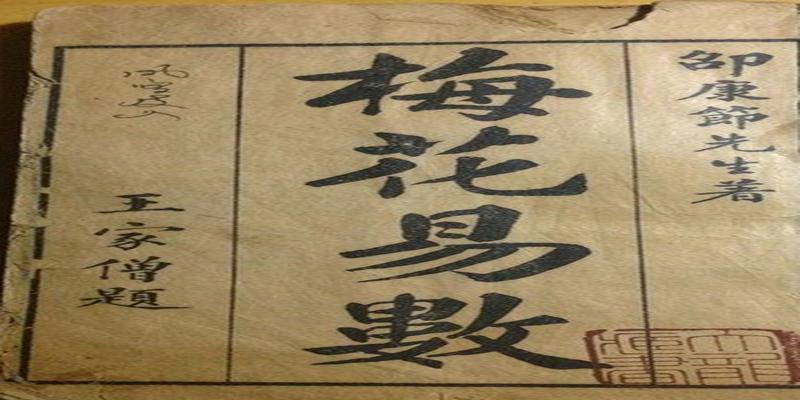 邵康節先生著
梅花易數
王家僧題